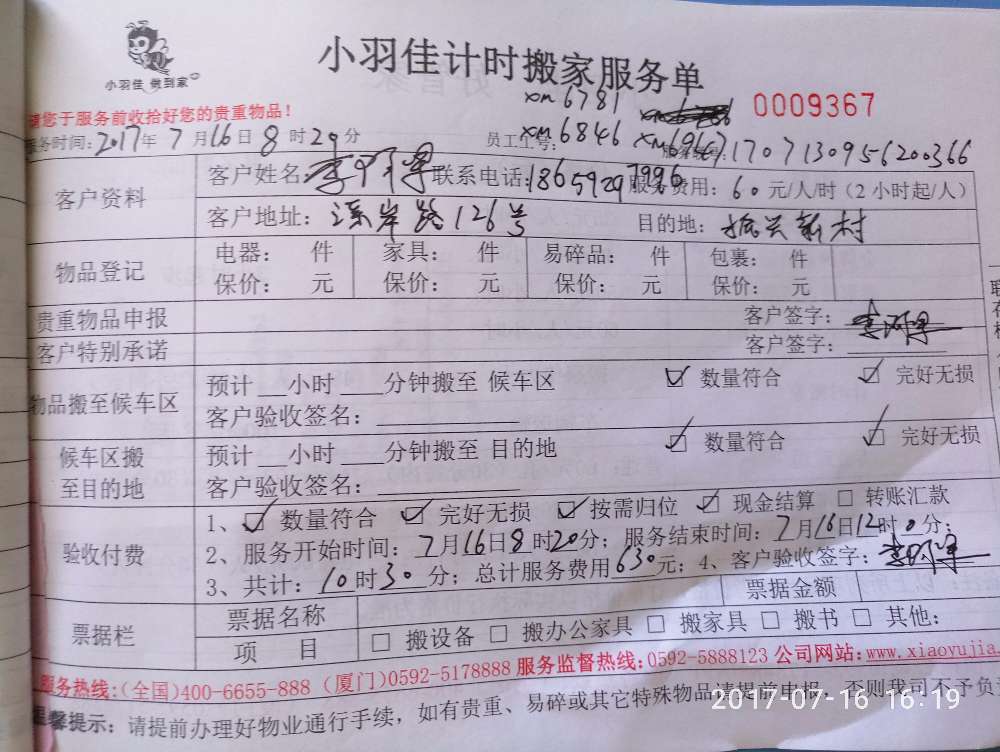 小羽佳 做到家
小羽佳计时搬家服务单
请您于服务前收拾好您的贵重物品！
xm6781
0009367
服务时间：2017年7月16日8时29分
员工工号：xm6846 xm6967
1707130956200366
客户资料
客户姓名： 联系电话：18659297996 服务费用：60元/人/时（2小时起/人）
客户地址：溪岸路126号 目的地：振兴新村
物品登记
电器： 件 家具： 件 易碎品： 件 包裹： 件
保价： 元 保价： 元 保价： 元 保价： 元
贵重物品申报 客户签字：
客户特别承诺 客户签字：
物品搬至候车区
预计__小时___分钟搬至 候车区 ☑ 数量符合 ☑ 完好无损
客户验收签名：
候车区搬至目的地
预计__小时___分钟搬至 目的地 ☑ 数量符合 ☑ 完好无损
客户验收签名：
验收付费
1、☑ 数量符合 ☑ 完好无损 ☑ 按需归位 ☑ 现金结算 □ 转账汇款
2、服务开始时间：7月16日8时20分；服务结束时间：7月16日12时0分；
3、共计：10时30分；总计服务费用630元；4、客户验收签字：
票据栏
票据名称 票据金额
项 目 □ 搬设备 □ 搬办公家具 □ 搬家具 □ 搬书 □ 其他：
服务热线：（全国）400-6655-888（厦门）0592-5178888 服务监督热线：0592-5888123 公司网站：www.xiaoyujia.
温馨提示：请提前办理好物业通行手续，如有贵重、易碎或其它特殊物品请提前申报，否则我司不予负
2017-07-16 16:19